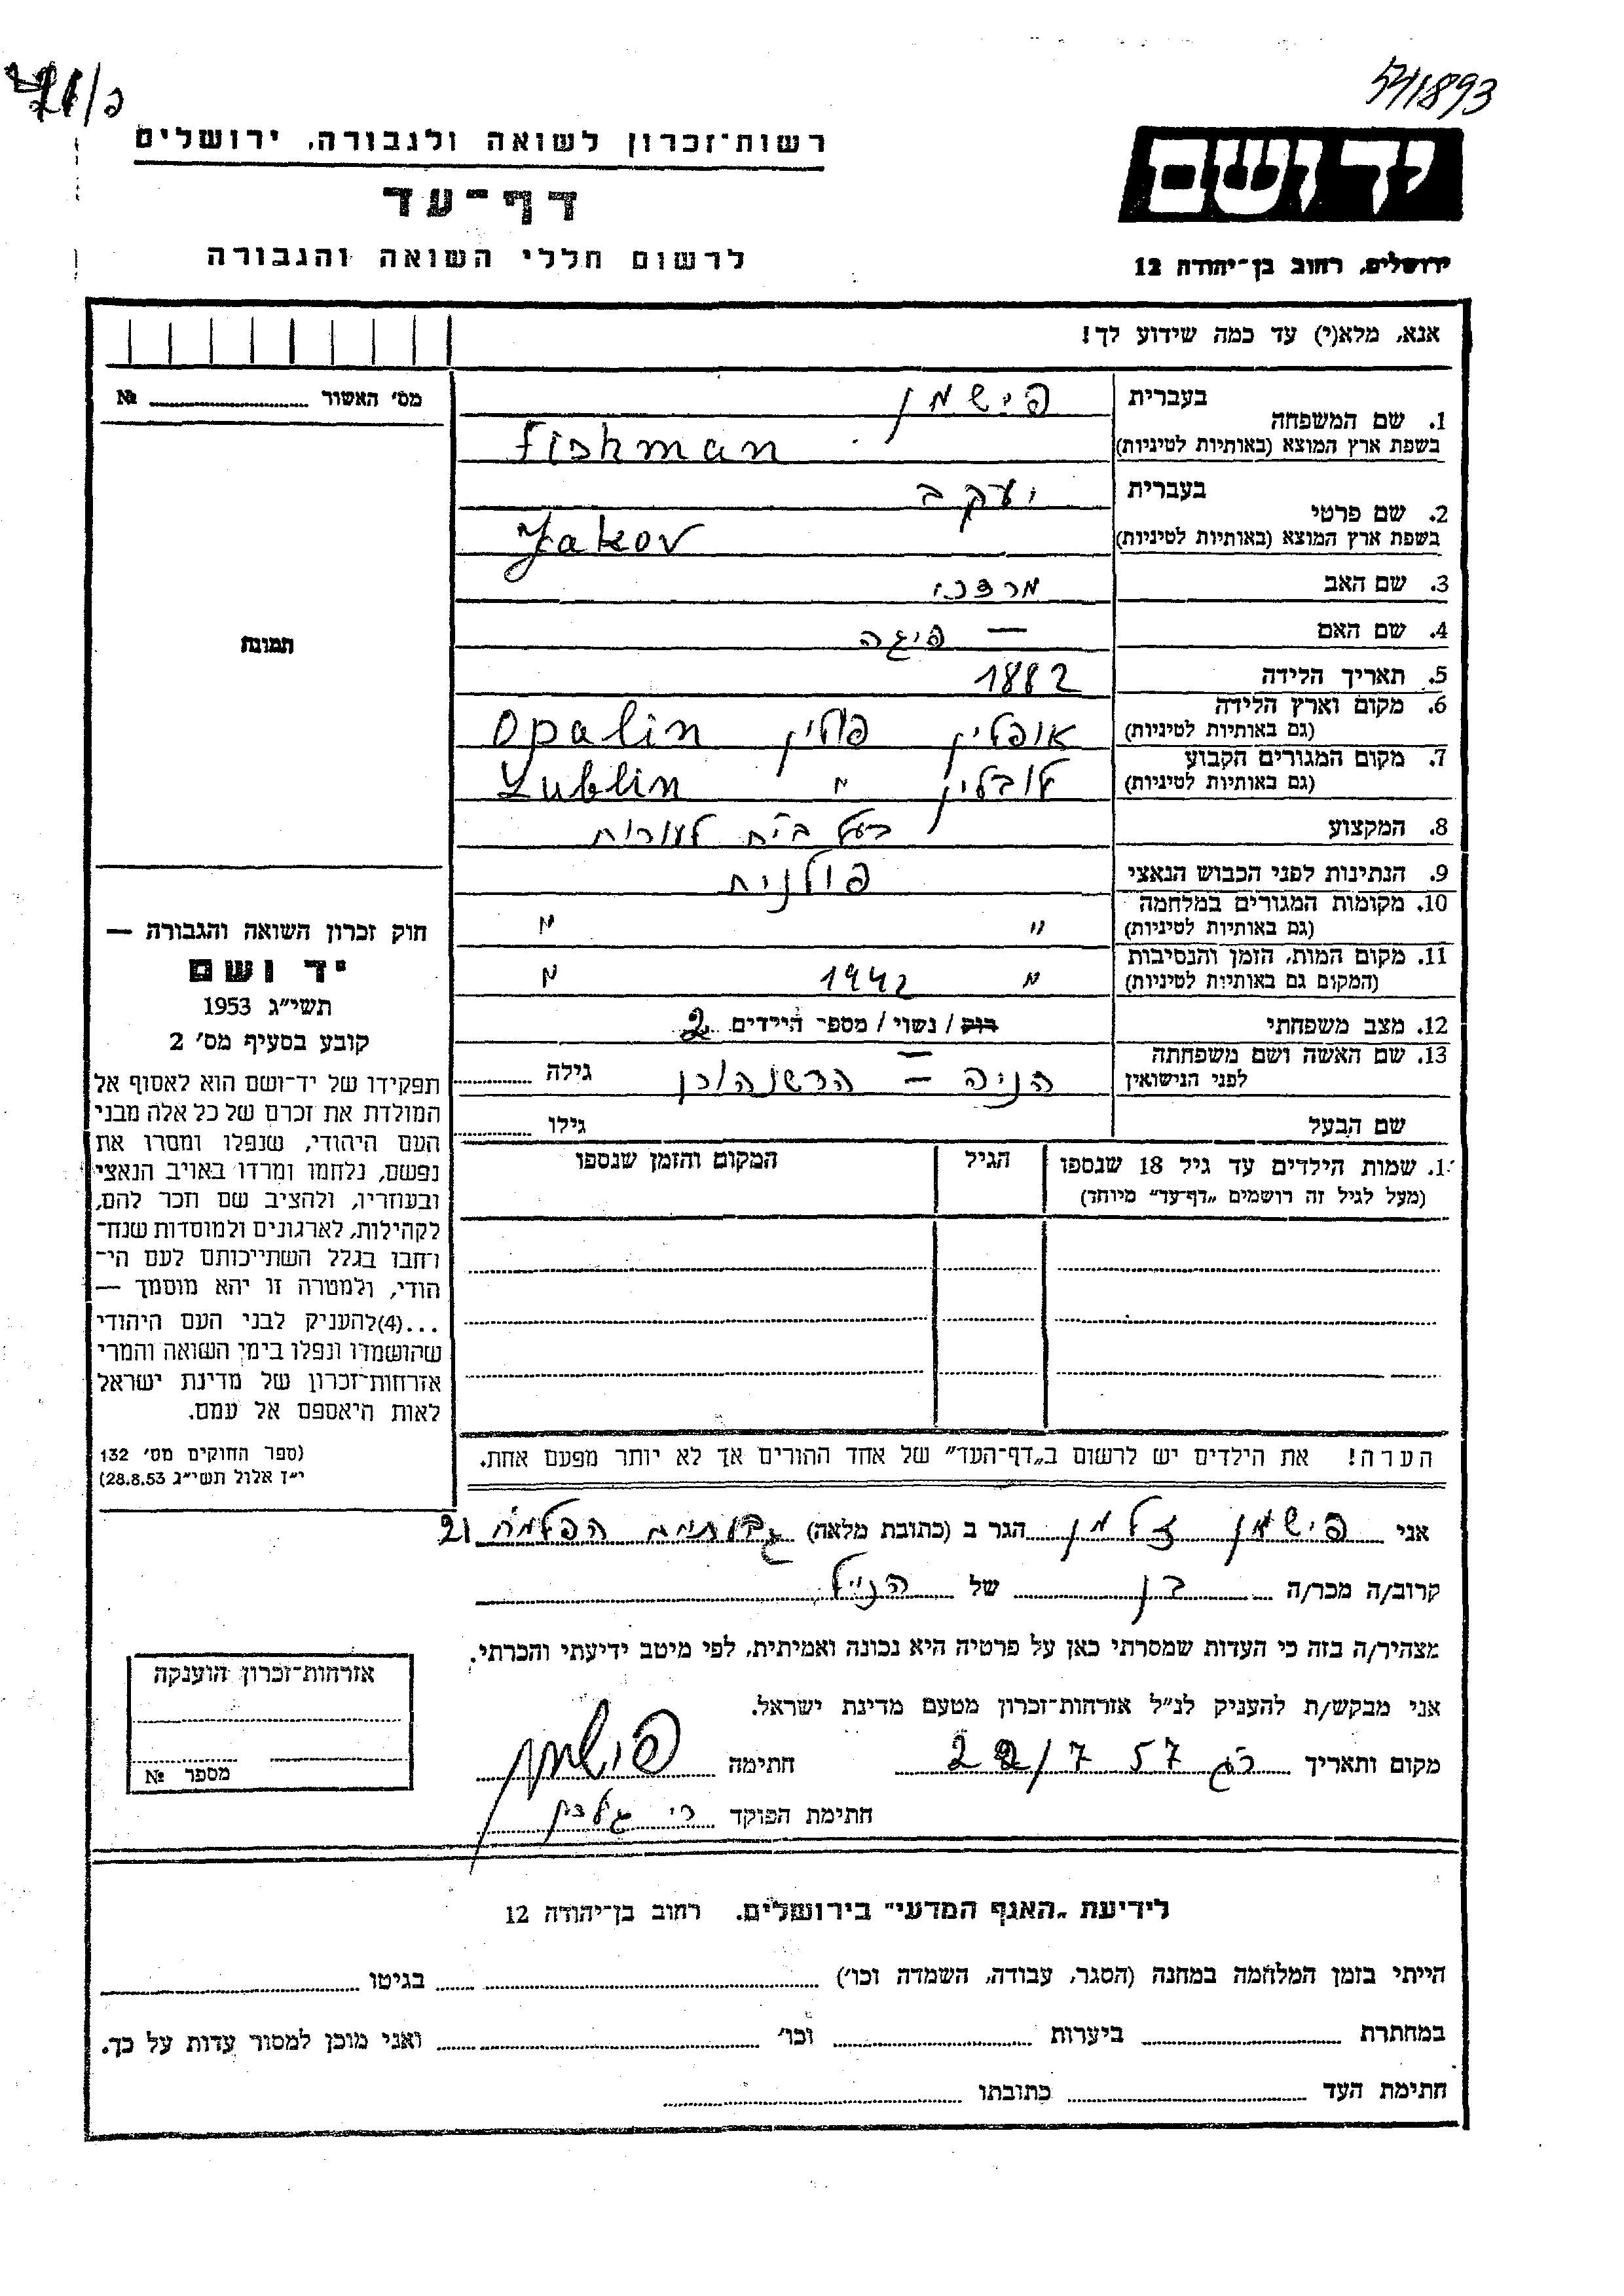 541893
פ/
רשות־זכרון לשואה ולגבורה, ירושלים
דף־עד
לרשום חללי השואה והגבורה
יד ושם
ירושלים, רחוב בן־יהודה 12
אנא, מלא(י) עד כמה שידוע לך!
מס' האשור № 
תמונה
1. שם המשפחה
בעברית פישמן
בשפת ארץ המוצא (באותיות לטיניות) Fishman
2. שם פרטי
בעברית יעקב
בשפת ארץ המוצא (באותיות לטיניות) Jakov
3. שם האב מרדכי
4. שם האם — פיגה
5. תאריך הלידה 1882
6. מקום וארץ הלידה
(גם באותיות לטיניות) אופלין פולין Opalin
7. מקום המגורים הקבוע
(גם באותיות לטיניות) לובלין " Lublin
8. המקצוע בעל בי"ח לעורות
9. הנתינות לפני הכבוש הנאצי פולנית
10. מקומות המגורים במלחמה
(גם באותיות לטיניות) " "
11. מקום המות, הזמן והנסיבות
(המקום גם באותיות לטיניות) " 1942 "
12. מצב משפחתי רווק / נשוי / מספר הילדים 2
13. שם האשה ושם משפחתה
לפני הנישואין הניה – הרשנהורן גילה
שם הבעל גילו
1. שמות הילדים עד גיל 18 שנספו
(מעל לגיל זה רושמים „דף־עד" מיוחד)
הגיל
המקום והזמן שנספו
הערה! את הילדים יש לרשום ב„דף־העד" של אחד ההורים אך לא יותר מפעם אחת.
חוק זכרון השואה והגבורה —
יד ושם
תשי"ג 1953
קובע בסעיף מס' 2
תפקידו של יד־ושם הוא לאסוף אל
המולדת את זכרם של כל אלה מבני
העם היהודי, שנפלו ומסרו את
נפשם, נלחמו ומרדו באויב הנאצי
ובעוזריו, ולהציב שם וזכר להם,
לקהילות, לארגונים ולמוסדות שנח־
רחבו בגלל השתייכותם לעם הי־
הודי, ולמטרה זו יהא מוסמך —
...(4)להעניק לבני העם היהודי
שהושמדו ונפלו בימי השואה והמרי
אזרחות־זכרון של מדינת ישראל
לאות היאספם אל עמם.
(ספר החוקים מס' 132
י"ז אלול תשי"ג 28.8.53)
אני פישמן זלמן הגר ב (כתובת מלאה) גבעתיים הפלמ"ח 21
קרוב/ה מכר/ה בן של הנ"ל
מצהיר/ה בזה כי העדות שמסרתי כאן על פרטיה היא נכונה ואמיתית, לפי מיטב ידיעתי והכרתי.
אני מבקש/ת להעניק לנ"ל אזרחות־זכרון מטעם מדינת ישראל.
מקום ותאריך רג 57 22/7 חתימה פישמן
חתימת הפוקד
אזרחות־זכרון הוענקה
מספר №
לידיעת „האגף המדעי" בירושלים. רחוב בן־יהודה 12
הייתי בזמן המלחמה במחנה (הסגר, עבודה, השמדה וכו') בגיטו
במחתרת ביערות וכו' ואני מוכן למסור עדות על כך.
חתימת העד כתובתו